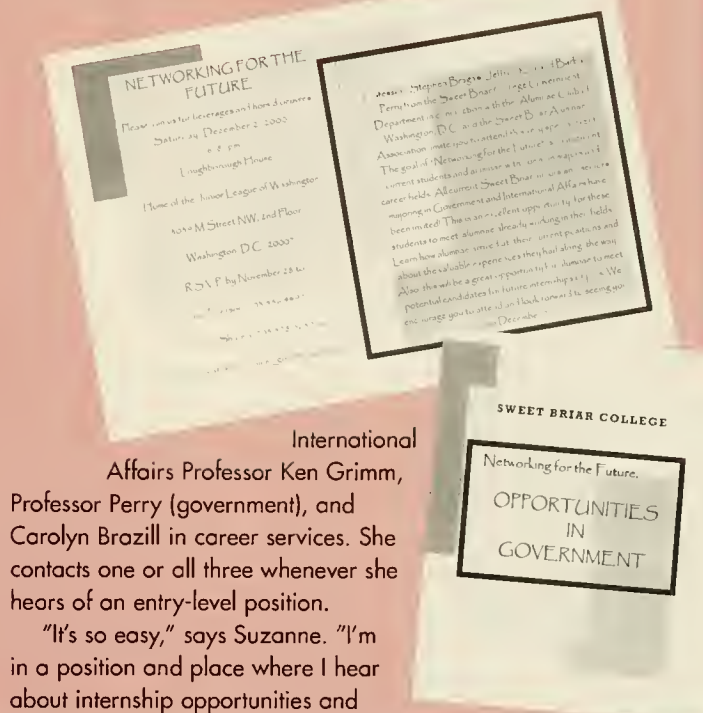 NETWORKING FOR THE
FUTURE
Please join us for beverages and hors d'oeuvres
Saturday, December 2, 2000
pm
Loughborough House
Home of the Junior League of Washington
3039 M Street NW, 2nd Floor
Washington D.C. 20007
R.S.V.P. by November 25 to:
Stephen Bragaw
Perry from the Sweet Briar College Government
Department in connection with the Alumnae Club of
Washington, D.C. and the Sweet Briar Alumnae
Association invite you to attend this very special
The goal of "Networking for the Future" is to
current students and alumnae
career fields. All current Sweet Briar
majoring in Government and International Affairs have
been invited! This is an excellent opportunity for these
students to meet alumnae already working in their fields
Learn how alumnae their current positions and
about the valuable experiences they had along the way.
Also this will be a great opportunity for alumnae to meet
potential candidates for future internships We
encourage you to attend and look forward to seeing you
December
SWEET BRIAR COLLEGE
Networking for the Future.
OPPORTUNITIES
IN
GOVERNMENT
International
Affairs Professor Ken Grimm,
Professor Perry (government), and
Carolyn Brazill in career services. She
contacts one or all three whenever she
hears of an entry-level position.
"It's so easy," says Suzanne. "I'm
in a position and place where I hear
about internship opportunities and